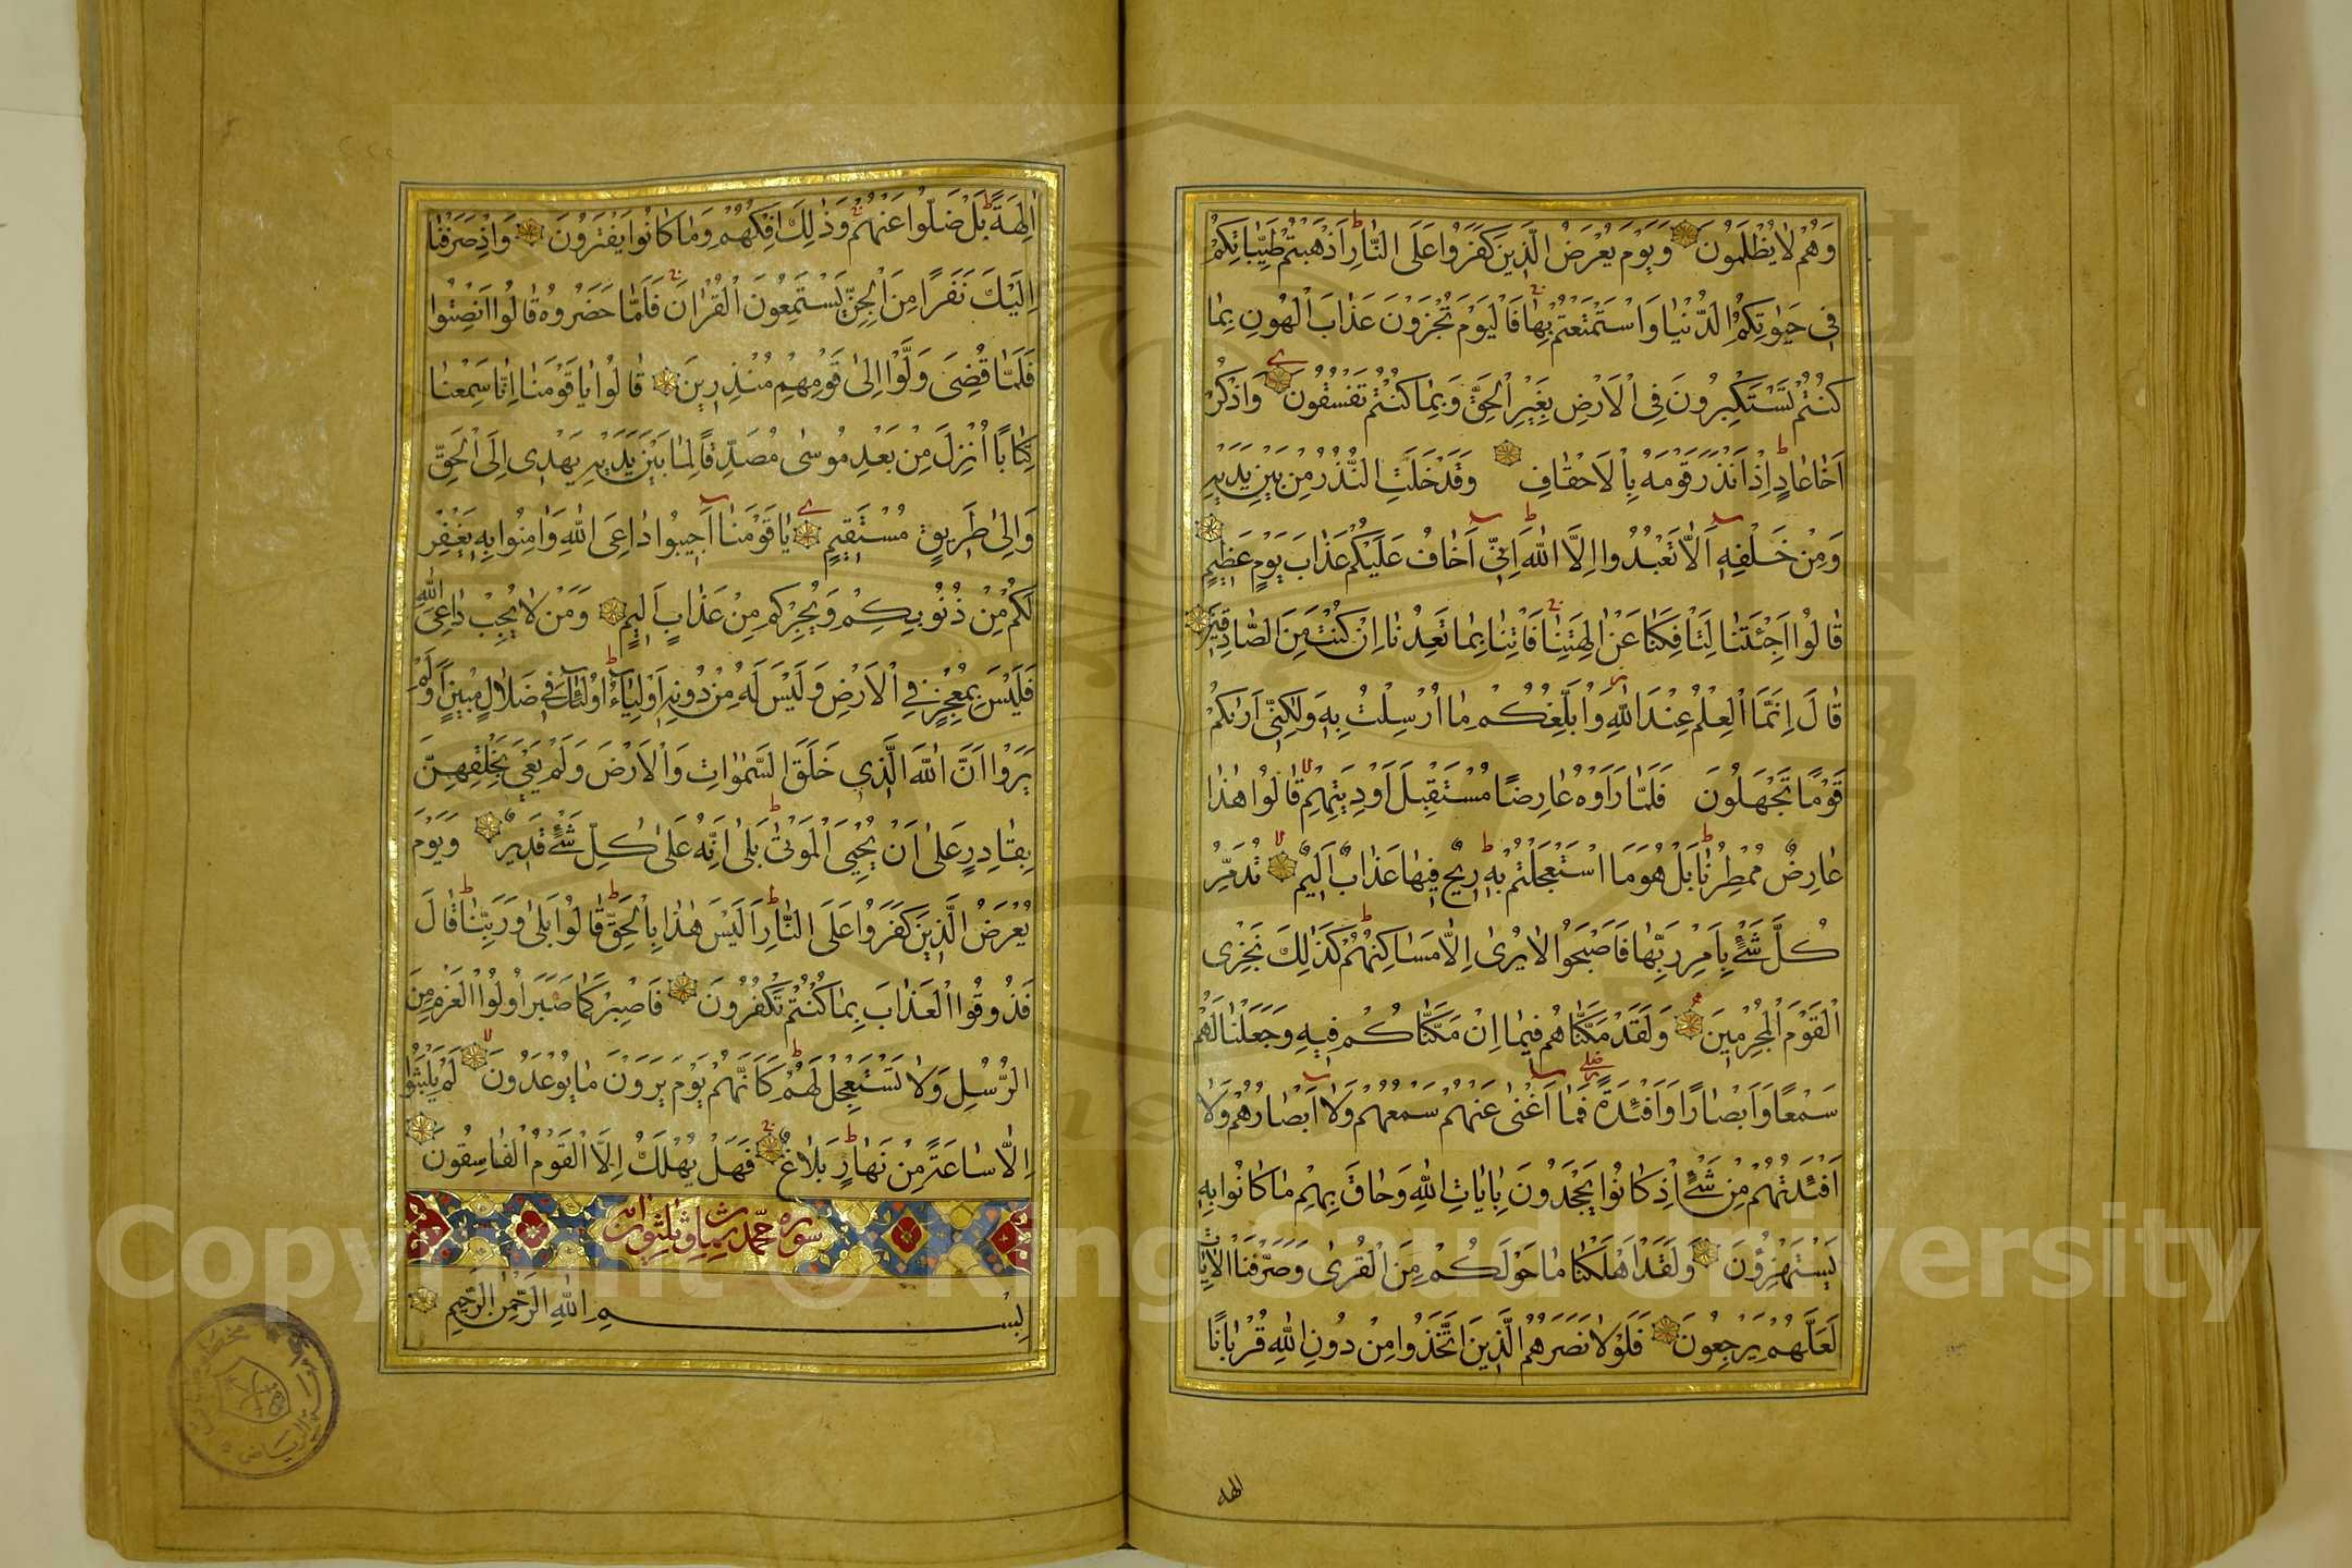 وَهُمْ لَا يُظْلَمُونَ وَيَوْمَ يُعْرَضُ الَّذِينَ كَفَرُوا عَلَى النَّارِ اَذْهَبْتُمْ طَيِّبَاتِكُمْ
فِى حَيٰوتِكُمُ الدُّنْيَا وَاسْتَمْتَعْتُمْ بِهَا فَالْيَوْمَ تُجْزَوْنَ عَذَابَ الْهُونِ بِمَا
كُنْتُمْ تَسْتَكْبِرُونَ فِى الْاَرْضِ بِغَيْرِ الْحَقِّ وَبِمَا كُنْتُمْ تَفْسُقُونَ وَاذْكُرْ
اَخَا عَادٍ اِذْ اَنْذَرَ قَوْمَهُ بِالْاَحْقَافِ وَقَدْ خَلَتِ النُّذُرُ مِنْ بَيْنِ يَدَيْهِ
وَمِنْ خَلْفِهِ اَلَّا تَعْبُدُوا اِلَّا اللّٰهَ اِنِّى اَخَافُ عَلَيْكُمْ عَذَابَ يَوْمٍ عَظِيمٍ
قَالُوا اَجِئْتَنَا لِتَاْفِكَنَا عَنْ اٰلِهَتِنَا فَاْتِنَا بِمَا تَعِدُنَا اِنْ كُنْتَ مِنَ الصَّادِقِينَ
قَالَ اِنَّمَا الْعِلْمُ عِنْدَ اللّٰهِ وَاُبَلِّغُكُمْ مَا اُرْسِلْتُ بِهِ وَلٰكِنِّى اَرٰيكُمْ
قَوْمًا تَجْهَلُونَ فَلَمَّا رَاَوْهُ عَارِضًا مُسْتَقْبِلَ اَوْدِيَتِهِمْ قَالُوا هٰذَا
عَارِضٌ مُمْطِرُنَا بَلْ هُوَ مَا اسْتَعْجَلْتُمْ بِهِ رِيحٌ فِيهَا عَذَابٌ اَلِيمٌ تُدَمِّرُ
كُلَّ شَىْءٍ بِاَمْرِ رَبِّهَا فَاَصْبَحُوا لَا يُرٰى اِلَّا مَسَاكِنُهُمْ كَذٰلِكَ نَجْزِى
الْقَوْمَ الْمُجْرِمِينَ وَلَقَدْ مَكَّنَّاهُمْ فِيمَا اِنْ مَكَّنَّاكُمْ فِيهِ وَجَعَلْنَا لَهُمْ
سَمْعًا وَاَبْصَارًا وَاَفْئِدَةً فَمَا اَغْنٰى عَنْهُمْ سَمْعُهُمْ وَلَا اَبْصَارُهُمْ وَلَا
اَفْئِدَتُهُمْ مِنْ شَىْءٍ اِذْ كَانُوا يَجْحَدُونَ بِاٰيَاتِ اللّٰهِ وَحَاقَ بِهِمْ مَا كَانُوا بِهِ
يَسْتَهْزِؤُنَ وَلَقَدْ اَهْلَكْنَا مَا حَوْلَكُمْ مِنَ الْقُرٰى وَصَرَّفْنَا الْاٰيَاتِ
لَعَلَّهُمْ يَرْجِعُونَ فَلَوْلَا نَصَرَهُمُ الَّذِينَ اتَّخَذُوا مِنْ دُونِ اللّٰهِ قُرْبَانًا
الهه
اٰلِهَةً بَلْ ضَلُّوا عَنْهُمْ وَذٰلِكَ اِفْكُهُمْ وَمَا كَانُوا يَفْتَرُونَ وَاِذْ صَرَفْنَا
اِلَيْكَ نَفَرًا مِنَ الْجِنِّ يَسْتَمِعُونَ الْقُرْاٰنَ فَلَمَّا حَضَرُوهُ قَالُوا اَنْصِتُوا
فَلَمَّا قُضِىَ وَلَّوْا اِلٰى قَوْمِهِمْ مُنْذِرِينَ قَالُوا يَا قَوْمَنَا اِنَّا سَمِعْنَا
كِتَابًا اُنْزِلَ مِنْ بَعْدِ مُوسٰى مُصَدِّقًا لِمَا بَيْنَ يَدَيْهِ يَهْدِى اِلَى الْحَقِّ
وَاِلٰى طَرِيقٍ مُسْتَقِيمٍ يَا قَوْمَنَا اَجِيبُوا دَاعِىَ اللّٰهِ وَاٰمِنُوا بِهِ يَغْفِرْ
لَكُمْ مِنْ ذُنُوبِكُمْ وَيُجِرْكُمْ مِنْ عَذَابٍ اَلِيمٍ وَمَنْ لَا يُجِبْ دَاعِىَ اللّٰهِ
فَلَيْسَ بِمُعْجِزٍ فِى الْاَرْضِ وَلَيْسَ لَهُ مِنْ دُونِهِ اَوْلِيَاءُ اُولٰئِكَ فِى ضَلَالٍ مُبِينٍ اَوَلَمْ
يَرَوْا اَنَّ اللّٰهَ الَّذِى خَلَقَ السَّمٰوَاتِ وَالْاَرْضَ وَلَمْ يَعْىَ بِخَلْقِهِنَّ
بِقَادِرٍ عَلٰى اَنْ يُحْيِىَ الْمَوْتٰى بَلٰى اِنَّهُ عَلٰى كُلِّ شَىْءٍ قَدِيرٌ وَيَوْمَ
يُعْرَضُ الَّذِينَ كَفَرُوا عَلَى النَّارِ اَلَيْسَ هٰذَا بِالْحَقِّ قَالُوا بَلٰى وَرَبِّنَا قَالَ
فَذُوقُوا الْعَذَابَ بِمَا كُنْتُمْ تَكْفُرُونَ فَاصْبِرْ كَمَا صَبَرَ اُولُوا الْعَزْمِ مِنَ
الرُّسُلِ وَلَا تَسْتَعْجِلْ لَهُمْ كَاَنَّهُمْ يَوْمَ يَرَوْنَ مَا يُوعَدُونَ لَمْ يَلْبَثُوا
اِلَّا سَاعَةً مِنْ نَهَارٍ بَلَاغٌ فَهَلْ يُهْلَكُ اِلَّا الْقَوْمُ الْفَاسِقُونَ
سورة محمد ثمان وثلثون اية
بِسْمِ اللّٰهِ الرَّحْمٰنِ الرَّحِيمِ
Copyright © King Saud University